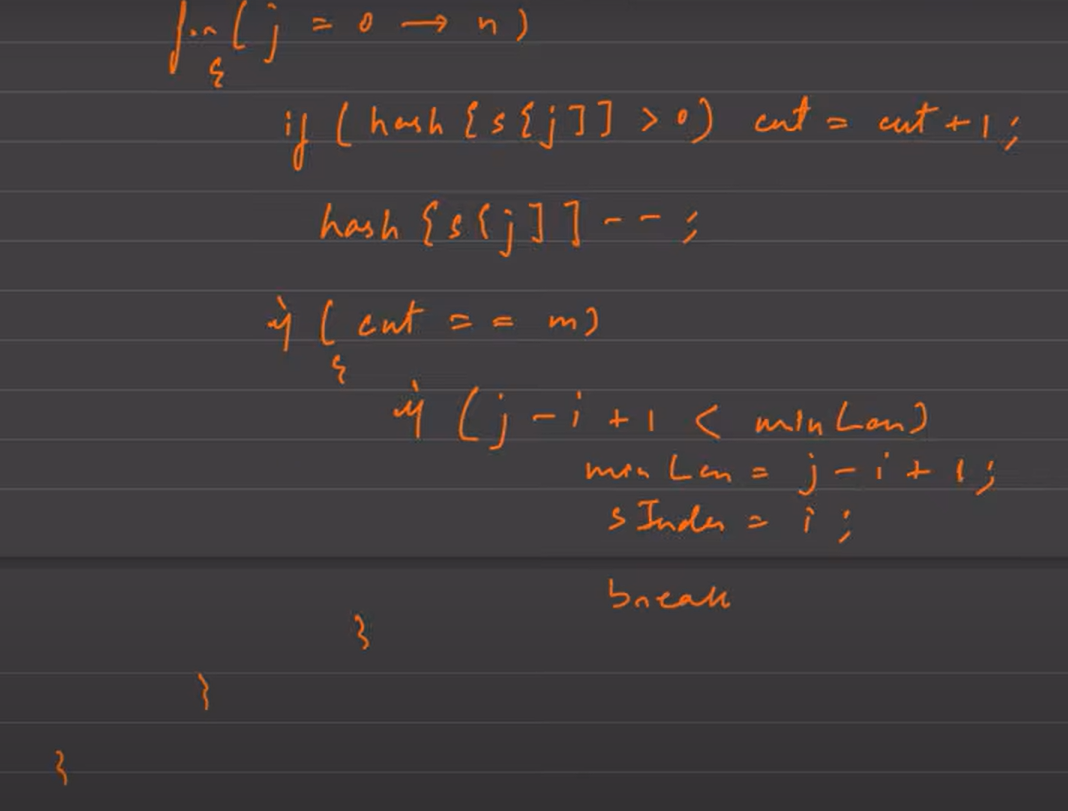 for(j = 0 → n)
{
if (hash[s[j]] > 0) cnt = cnt + 1;
hash[s[j]]--;
if (cnt == m)
{
if (j - i + 1 < minLen)
minLen = j - i + 1;
sIndex = i;
break
}
}
}